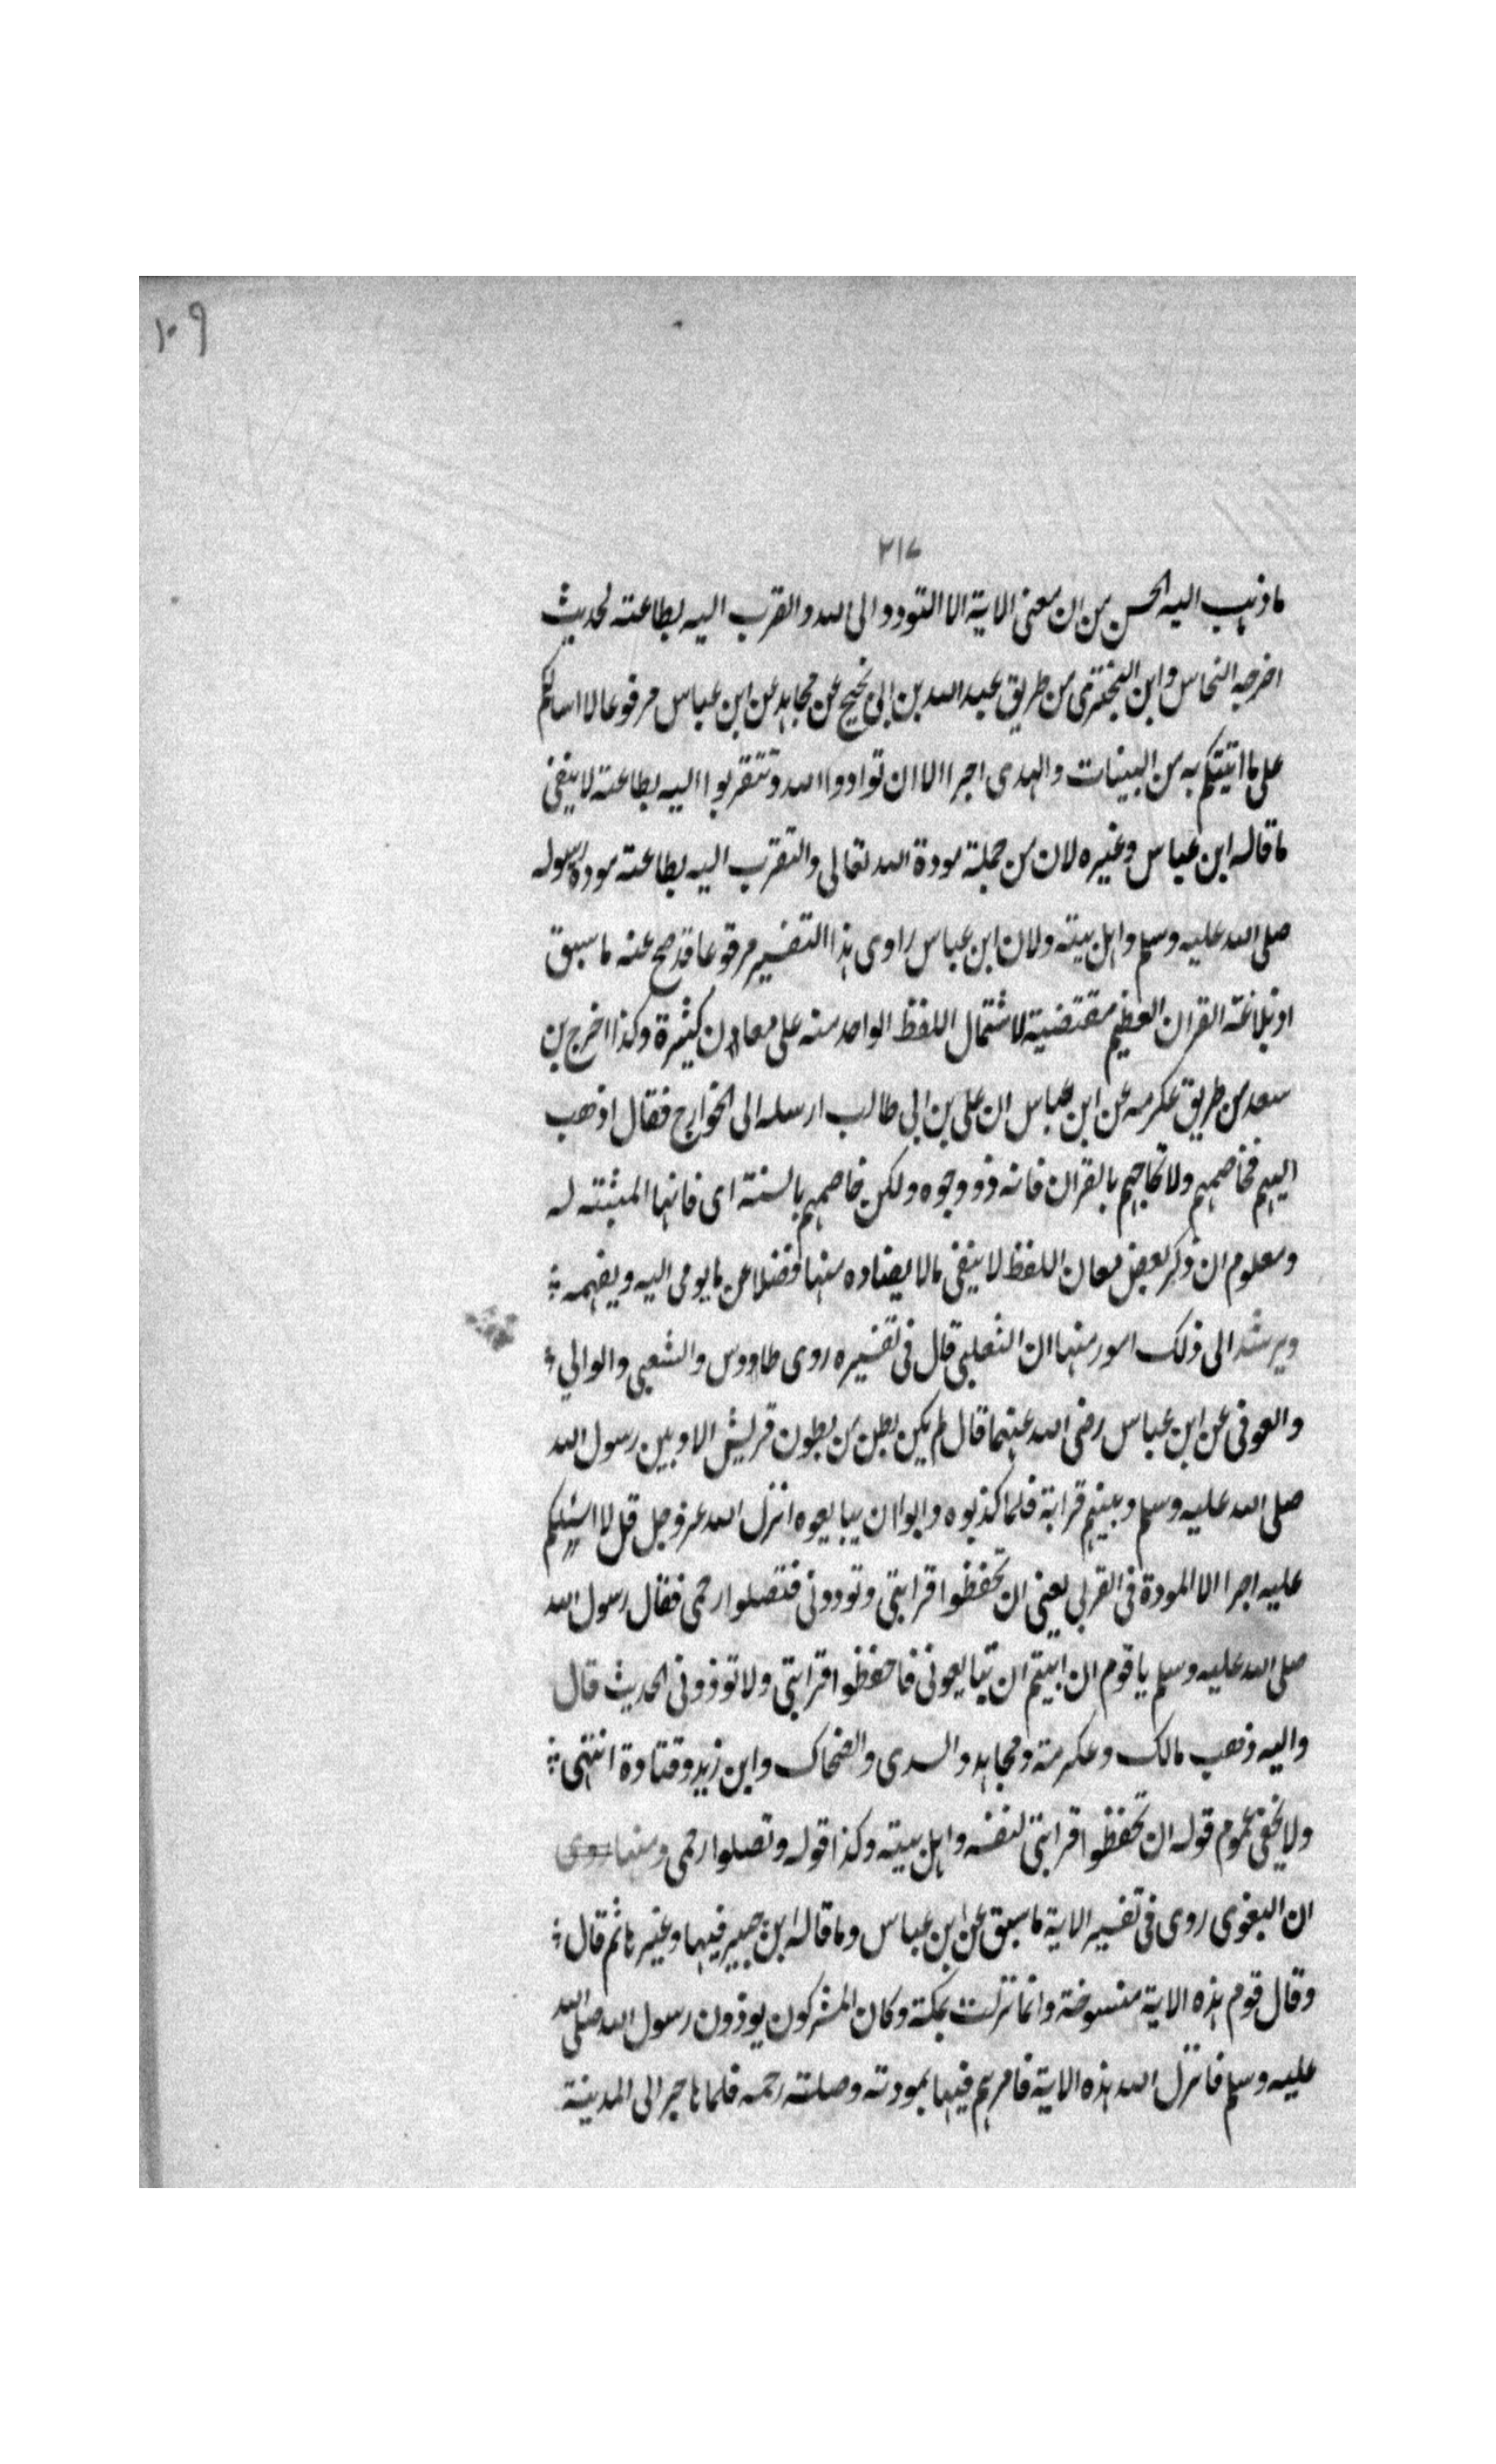 ١٠٩
٢١٧
ما ذهب اليه الحسن من ان معنى الاية الا التودد الى الله والقرب اليه بطاعته لحديث
اخرجه النحاس وابن البختري من طريق عبد الله بن ابي نجيح عن مجاهد عن ابن عباس مرفوعا لا اسالكم
على ما اتيتكم به من البينات والهدى اجرا الا ان توادوا الله وتتقربوا اليه بطاعته لا ينفي
ما قاله ابن عباس وغيره لان من جملة مودة الله تعالى والتقرب اليه بطاعته مودة رسوله
صلى الله عليه وسلم واهل بيته ولان ابن عباس راوى هذا التفسير مرفوعا قد صح عنه ما سبق
اذ بلاغة القران العظيم مقتضية لاشتمال اللفظ الواحد منه على معادن كثيرة وكذا اخرج بن
سعد من طريق عكرمه عن ابن عباس ان على بن ابي طالب ارسله الى الخوارج فقال اذهب
اليهم فخاصمهم ولا تحاجهم بالقران فانه ذو وجوه ولكن خاصمهم بالسنة اى فانها المثبته له
ومعلوم ان ذكر بعض معان اللفظ لا ينفي ما لا يضاده منها فضلا عن ما يومى اليه ويفهمه ؛
ويرشد الى ذلك امور منها ان الثعلبي قال فى تفسيره روى طاووس والشعبي والوالبي ؛
والعوفى عن ابن عباس رضى الله عنهما قال لم يكن بطن من بطون قريش الا وبين رسول الله
صلى الله عليه وسلم وبينهم قرابة فلما كذبوه وابوا ان يبايعوه انزل الله عز وجل قل لا اسئلكم
عليه اجرا الا المودة فى القربى يعنى ان تحفظوا قرابتى وتودونى فتصلوا رحمى فقال رسول الله
صلى الله عليه وسلم يا قوم ان ابيتم ان تبايعونى فاحفظوا قرابتى ولا توذونى الحديث قال
واليه ذهب مالك وعكرمة ومجاهد والسدى والضحاك وابن زيد وقتادة انتهى ؛
ولا يخفى عموم قوله ان تحفظوا قرابتى لنفسه واهل بيته وكذا قوله وتصلوا رحمى ومنها روى
ان البغوى روى فى تفسير الاية ما سبق عن ابن عباس وما قاله ابن جبير فيها وغيرها ثم قال ؛
وقال قوم هذه الاية منسوخة وانما نزلت بمكة وكان المشركون يوذون رسول الله صلى الله
عليه وسلم فانزل الله هذه الاية فامرهم فيها بمودته وصلته رحمه فلما هاجر الى المدينة